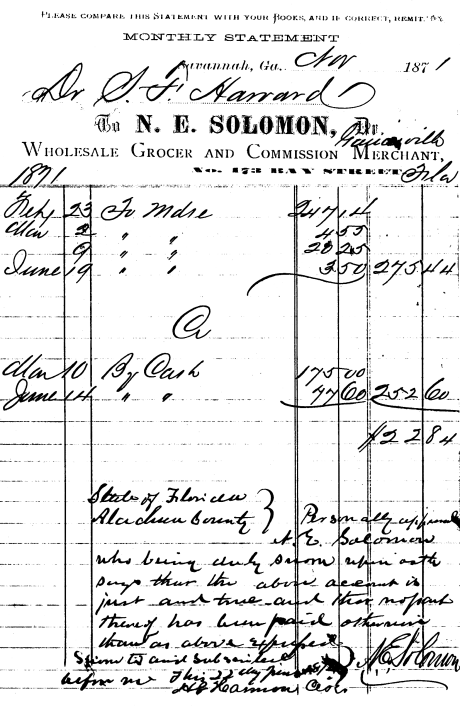 PLEASE COMPARE THIS STATEMENT WITH YOUR BOOKS, AND IF CORRECT, REMIT.
MONTHLY STATEMENT
Savannah, Ga., Nov 1871
Dr S. F. Harvard
To N. E. SOLOMON, Dr.
Gainesville
WHOLESALE GROCER AND COMMISSION MERCHANT,
Fla
No. 173 BAY STREET
1871
Feby 23 To Mdse 247 14
Mar 2 " " 4 55
9 " " 20 25
June 19 " " 3 50 275 44
Cr
Mar 10 By Cash 175 00
June 14 " " 77 60 252 60
$22 84
State of Florida
Alachua County } Personally appeared
N. E. Solomon
who being duly sworn upon oath
says that the above account is
just and true and that no part
thereof has been paid otherwise
than as above expressed
Sworn to and subscribed N E Solomon
before me This 22 day